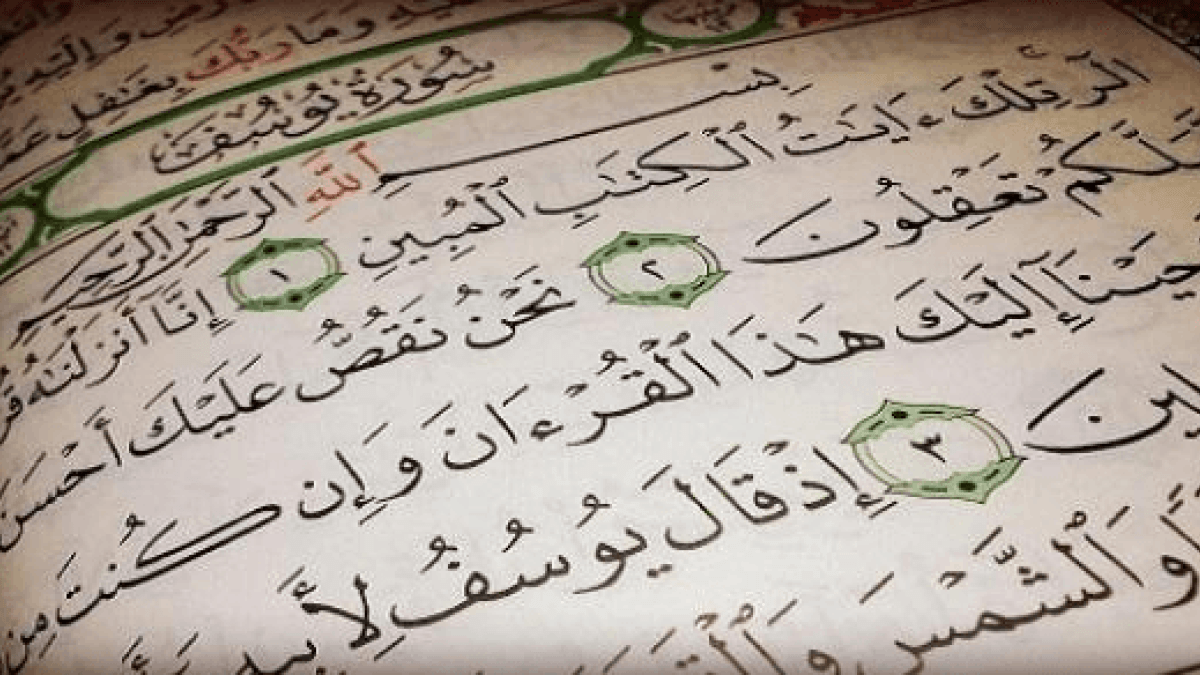 وَإِلَيْهِ
وَمَا رَبُّكَ بِغَٰفِلٍ عَمَّ
سُورَةُ يُوسُفَ
بِسْمِ ٱللَّهِ ٱلرَّحْمَٰنِ ٱلرَّحِيمِ
الٓر تِلْكَ ءَايَٰتُ ٱلْكِتَٰبِ ٱلْمُبِينِ ١ إِنَّآ أَنزَلْنَٰهُ قُر
لَّكُمْ تَعْقِلُونَ ٢ نَحْنُ نَقُصُّ عَلَيْكَ أَحْسَنَ
حَيْنَآ إِلَيْكَ هَٰذَا ٱلْقُرْءَانَ وَإِن كُنتَ مِن
لِينَ ٣ إِذْ قَالَ يُوسُفُ لِأَبِيهِ يَٰٓأَ
وَٱلشَّمْسَ وَٱلْقَمَرَ